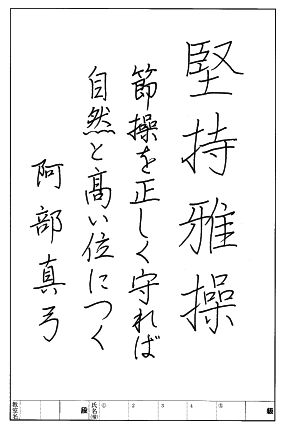 堅持雅操
節操を正しく守れば
自然と高い位につく
阿部真弓
級 ⑤ 4 3 2 ① 氏名(雅号) 段 教室名